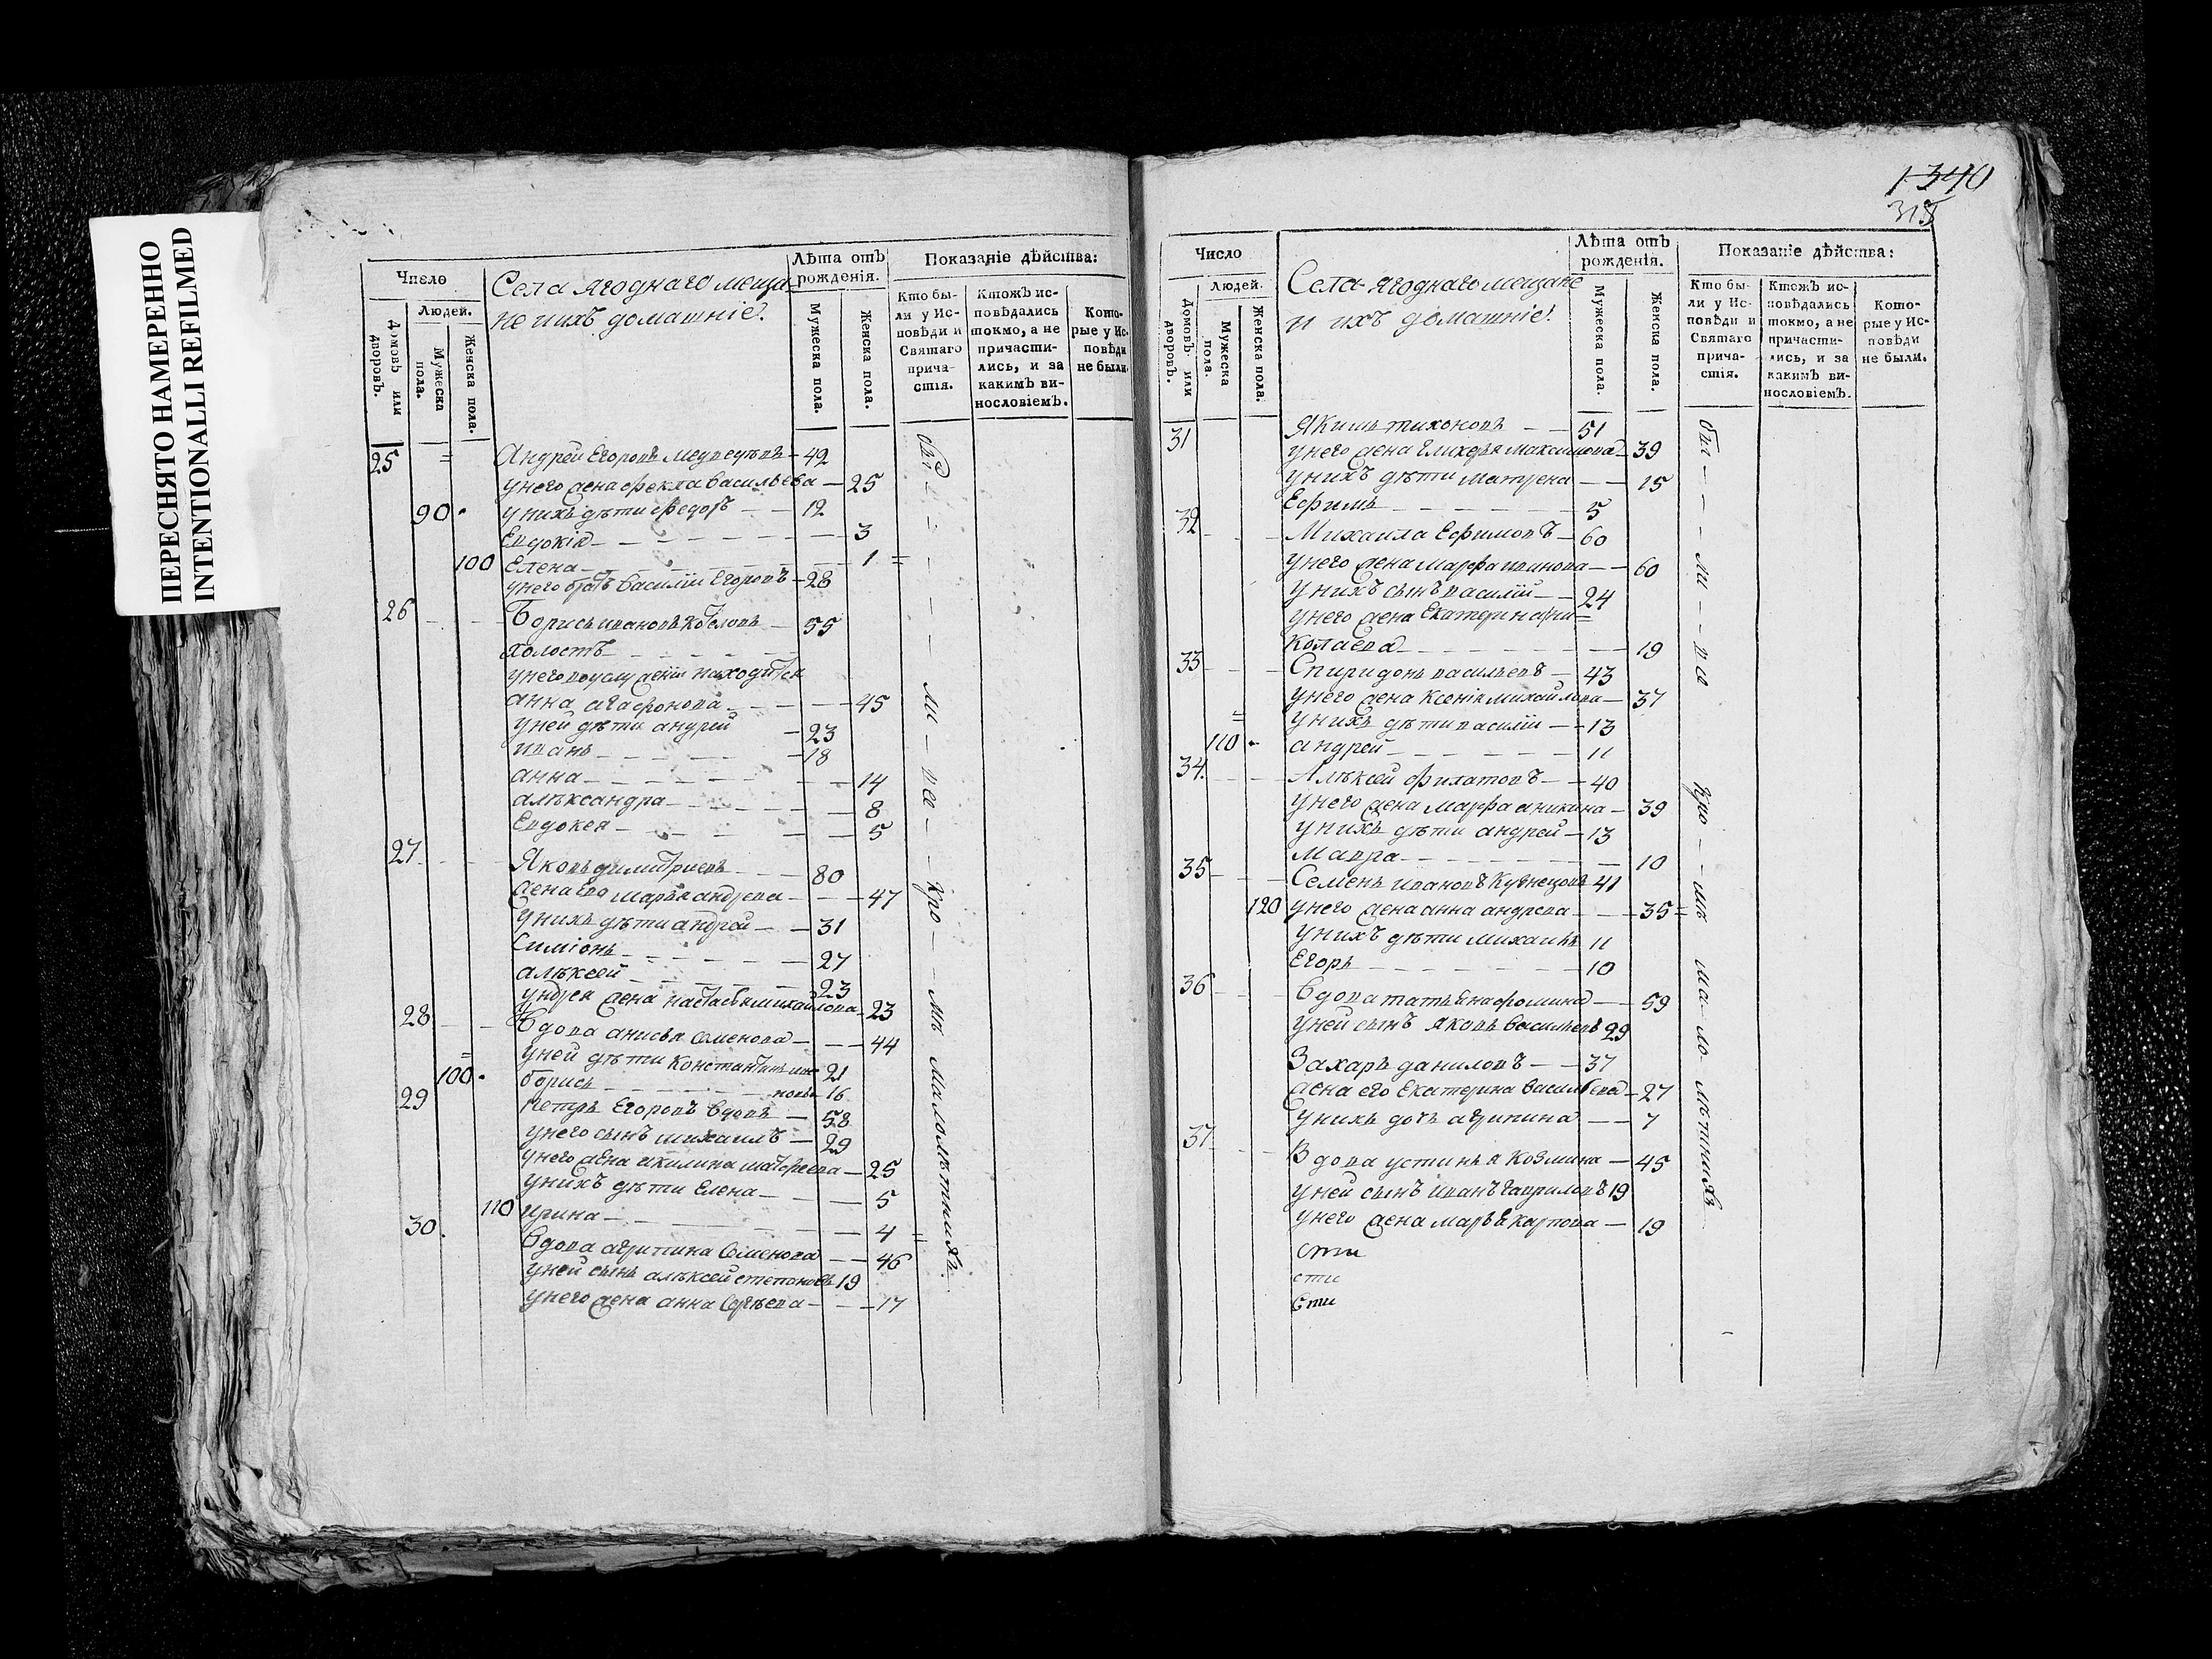 ПЕРЕСНЯТО НАМЕРЕННО
INTENTIONALLI REFILMED
Число
Людей.
Домовъ или дворовъ.
Мужеска пола.
Женска пола.
Села Ягоднаго меща-
не и ихъ домашніе.
Лѣта отъ рожденія.
Мужеска пола.
Женска пола.
Показаніе дѣйства:
Кто бы-
ли у Ис-
повѣди и
Святаго
прича-
стія.
Ктожъ ис-
повѣдались
токмо, а не
причасти-
лись, и за
какимъ ви-
нословіемъ.
Кото-
рые у Ис-
повѣди
не были.
25 = Андрей Егоровъ Медведевъ 42
у него жена Фекла Васильева 25
90 у нихъ дѣти Федоръ 12
Евдокія 3
100 Елена 1 =
у него братъ Василіи Егоровъ 28
26 Борисъ Ивановъ Котловъ 55
холостъ
у него въ услуженіи находится
анна агафонова 45
у ней дѣти андрей 23
иванъ 18
анна 14
алѣксандра 8
Евдокея 5
27 Яковъ димитриевъ 80
жена ево марья андрева 47
у нихъ дѣти андрей 31
Симіонъ 27
алѣксей 23
у ндрея жена настасья михайлова 23
28 Вдова анисья Семенова 44
= у ней дѣти Константинъ 21
100 борисъ 16
29 петръ Егоровъ вдовъ 58
у него сынъ михаилъ 29
у него жена акилина матфеева 25
у нихъ дѣти Елена 5
110 ирина 4 =
30. Вдова агрипина Семенова 46
у ней сынъ алѣксей степановъ 19
у него жена анна Сергѣева 17
бы - ли - все - кро - мѣ малолѣтнихъ
1340
315
Число
Людей.
Домовъ или дворовъ.
Мужеска пола.
Женска пола.
Села Ягоднаго мещане
и ихъ домашніе.
Лѣта отъ рожденія.
Мужеска пола.
Женска пола.
Показаніе дѣйства:
Кто бы-
ли у Ис-
повѣди и
Святаго
прича-
стія.
Ктожъ ис-
повѣдались
токмо, а не
причасти-
лись, и за
какимъ ви-
нословіемъ.
Кото-
рые у Ис-
повѣди
не были.
31 Якимъ тихоновъ 51
у него жена Гликерья максимова 39
у нихъ дѣти матрена 15
Ефимъ 5
32 Михаила Ефимовъ 60
у него жена марфа иванова 60
у нихъ сынъ василіи 24
у него жена Екатерина ни=
колаева 19
33 Спиридонъ васильевъ 43
у него жена Ксенія михайлова 37
= у нихъ дѣти василіи 13
110 андрей 11
34. Алѣксей филатовъ 40
у него жена марфа аникина 39
у нихъ дѣти андрей 13
Мавра 10
35 Семенъ ивановъ Кузнецовъ 41
120 у него жена анна андрева 35 =
у нихъ дѣти михаила 11
Егоръ 10
36 Вдова татьяна фомина 59
у ней сынъ яковъ васильевъ 29
Захаръ даниловъ 37
жена его Екатерина васильева 27
у нихъ дочь агрипина 7
37 Вдова устинья Козмина 45
у ней сынъ иванъ гавриловъ 19
у него жена марья карпова 19
сти
сти
сти
бы - ли - все кро - мѣ ма-ло-лѣтнихъ